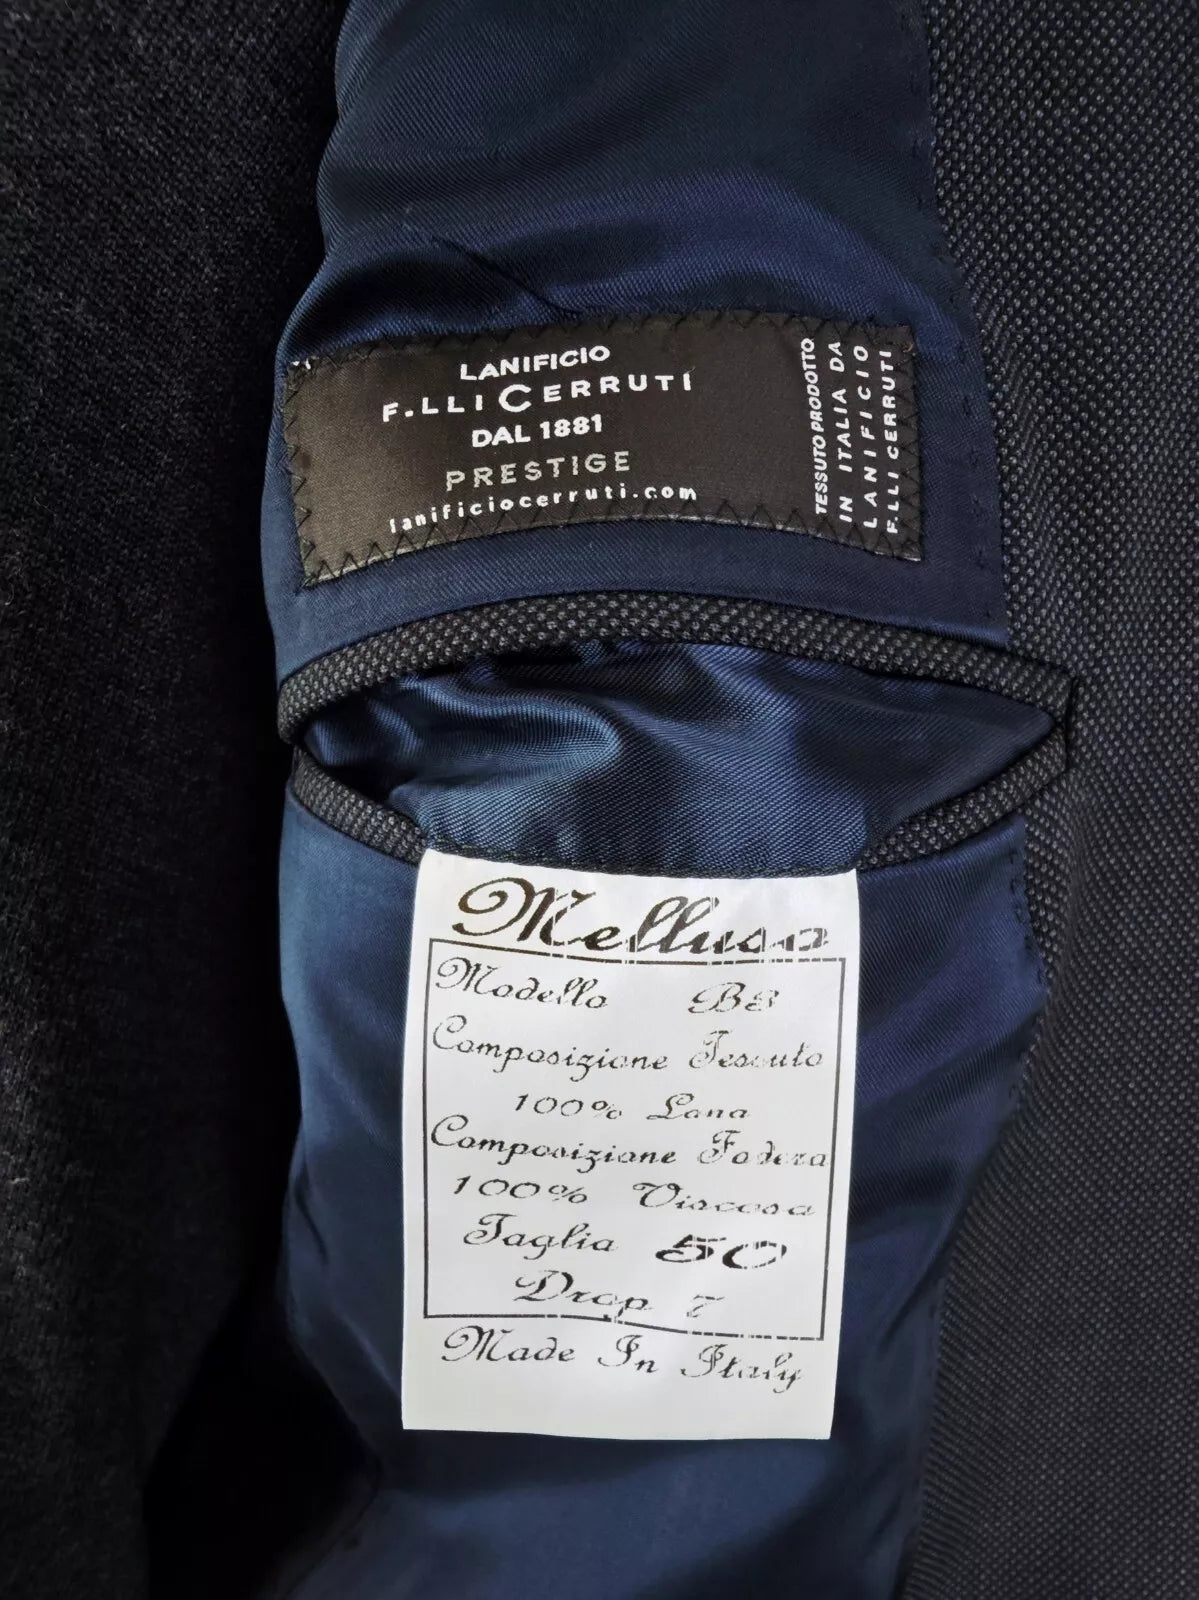 LANIFICIO
F.LLI CERRUTI
DAL 1881
PRESTIGE
lanificiocerruti.com
TESSUTO PRODOTTO
IN ITALIA DA
LANIFICIO
F.LLI CERRUTI
Melluso
Modello B3
Composizione Tessuto
100% Lana
Composizione Fodera
100% Viscosa
Taglia 50
Drop 7
Made In Italy